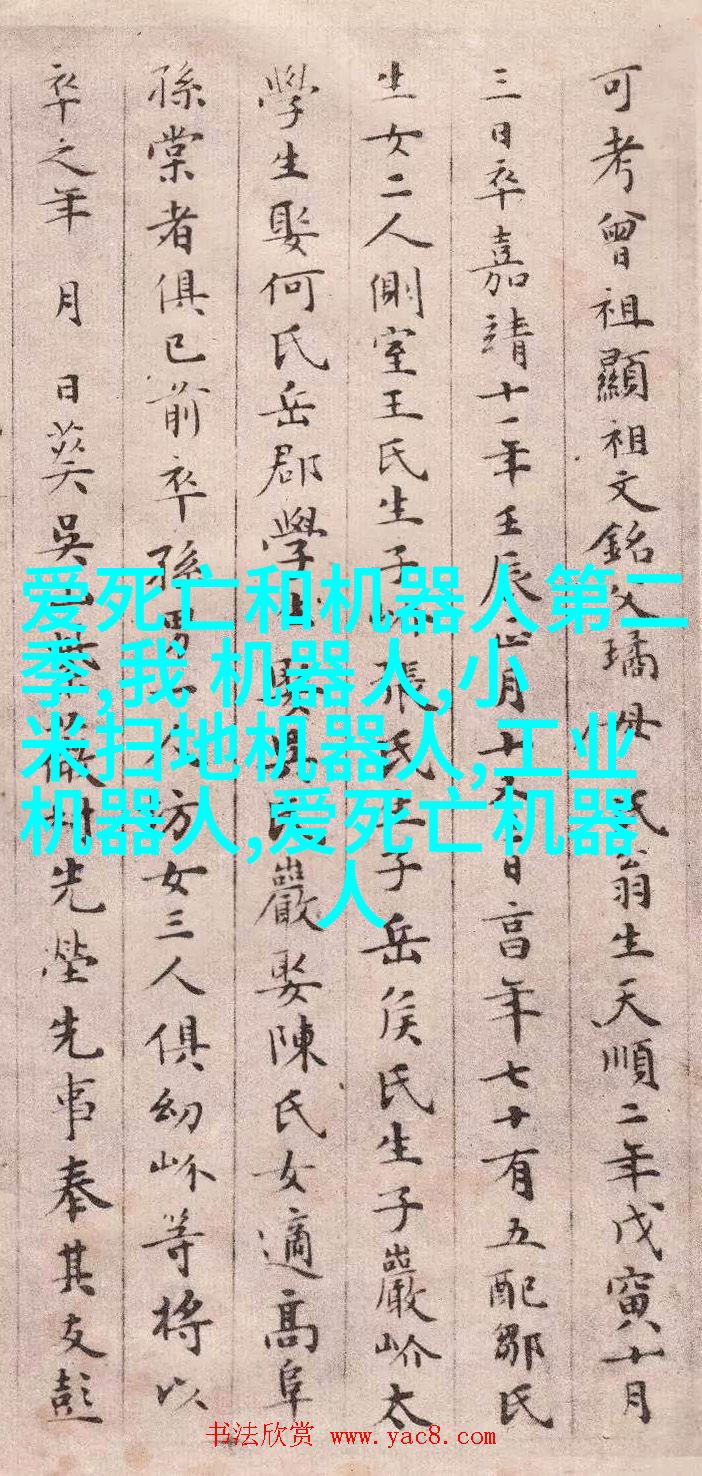 可考曾祖顯祖文銘父璚母 氏翁生天順二年戊寅十月
三日卒嘉靖十一年壬辰正月十 日高年七十有五配鄒氏
生女二人側室王氏生子 張氏生子岳矦氏生子巖岕太
學生娶何氏岳郡學生娶 氏巖娶陳氏女適髙阜
孫棠者俱已前卒孫男 人坊女三人俱幼岕等將以
卒之年 月 日葬吳 先塋先事奉其友彭
爱死亡和机器人第二
季,我 机器人,小
米扫地机器人,工业
机器人,爱死亡机器
人
书法欣赏 www.yac8.com